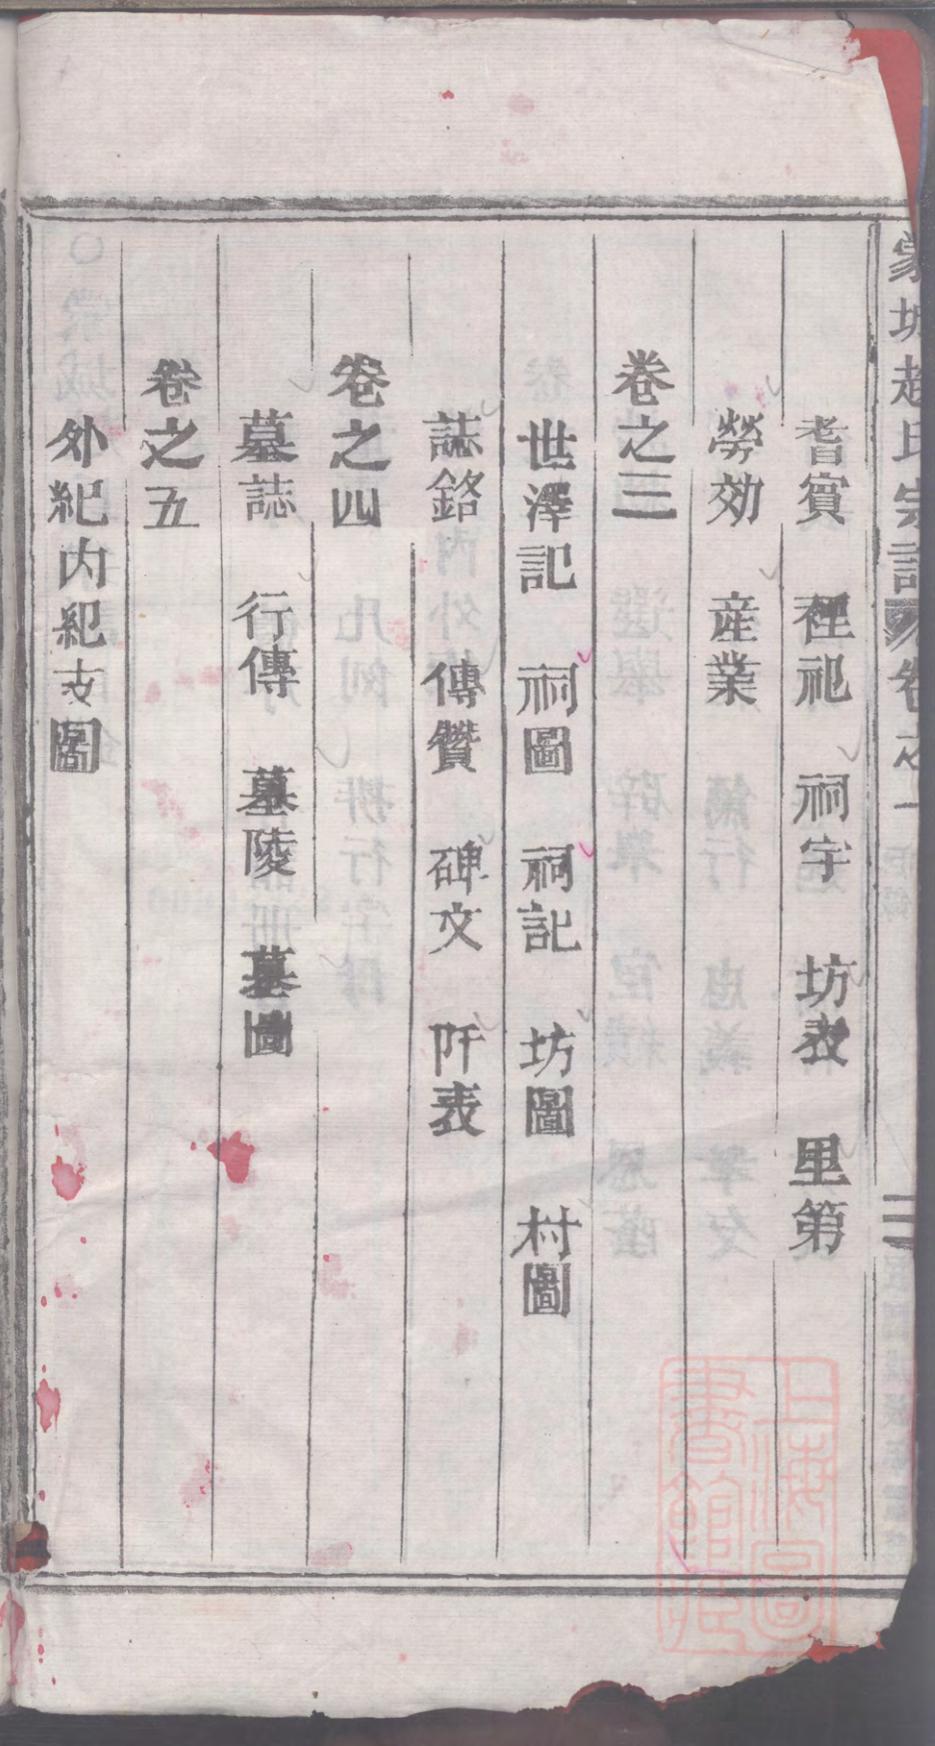 耆賓　禋祀　祠宇　坊表　里第
勞効　産業
卷之三
世澤記　祠圖　祠記　坊圖　村圖
誌銘　傳贊　碑文　阡表
卷之四
墓誌　行傳　墓陵　墓圖
卷之五
外紀内紀支圖
趙氏宗譜　卷之一
上海圖書館藏